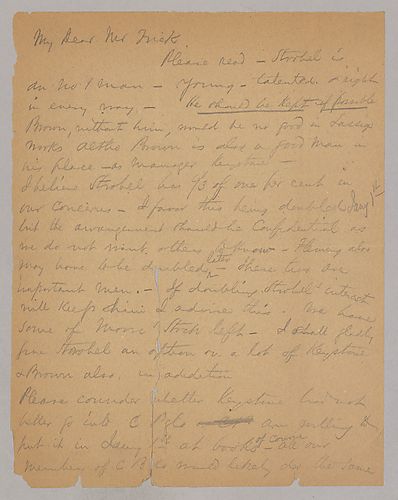 My Dear Mr Frick
Please read - Strobel is
an No 1 man - young - talented & right
in every way - He should be kept if possible
Brown, without him, would be no good in large
works altho Brown is also a good man in
his place - as manager Keystone -
I believe Strobel has 1/3 of one per cent in
our concerns - I favor this being doubled Jany 1st
but the arrangement should be confidential as
we do not want others to know - Fleming also
may have to be doubled later - These two are
important men. - If doubling Strobel's interest
will keep him I advise this. We have
some of Moore Stock left - I shall gladly
give Strobel an option on a lot of Keystone
& Brown also, in addition
Please consider whether Keystone had not
better go into C P & Co are willing to
put it in Jany 1st at books of course - all our
members of C B Co would likely do the same